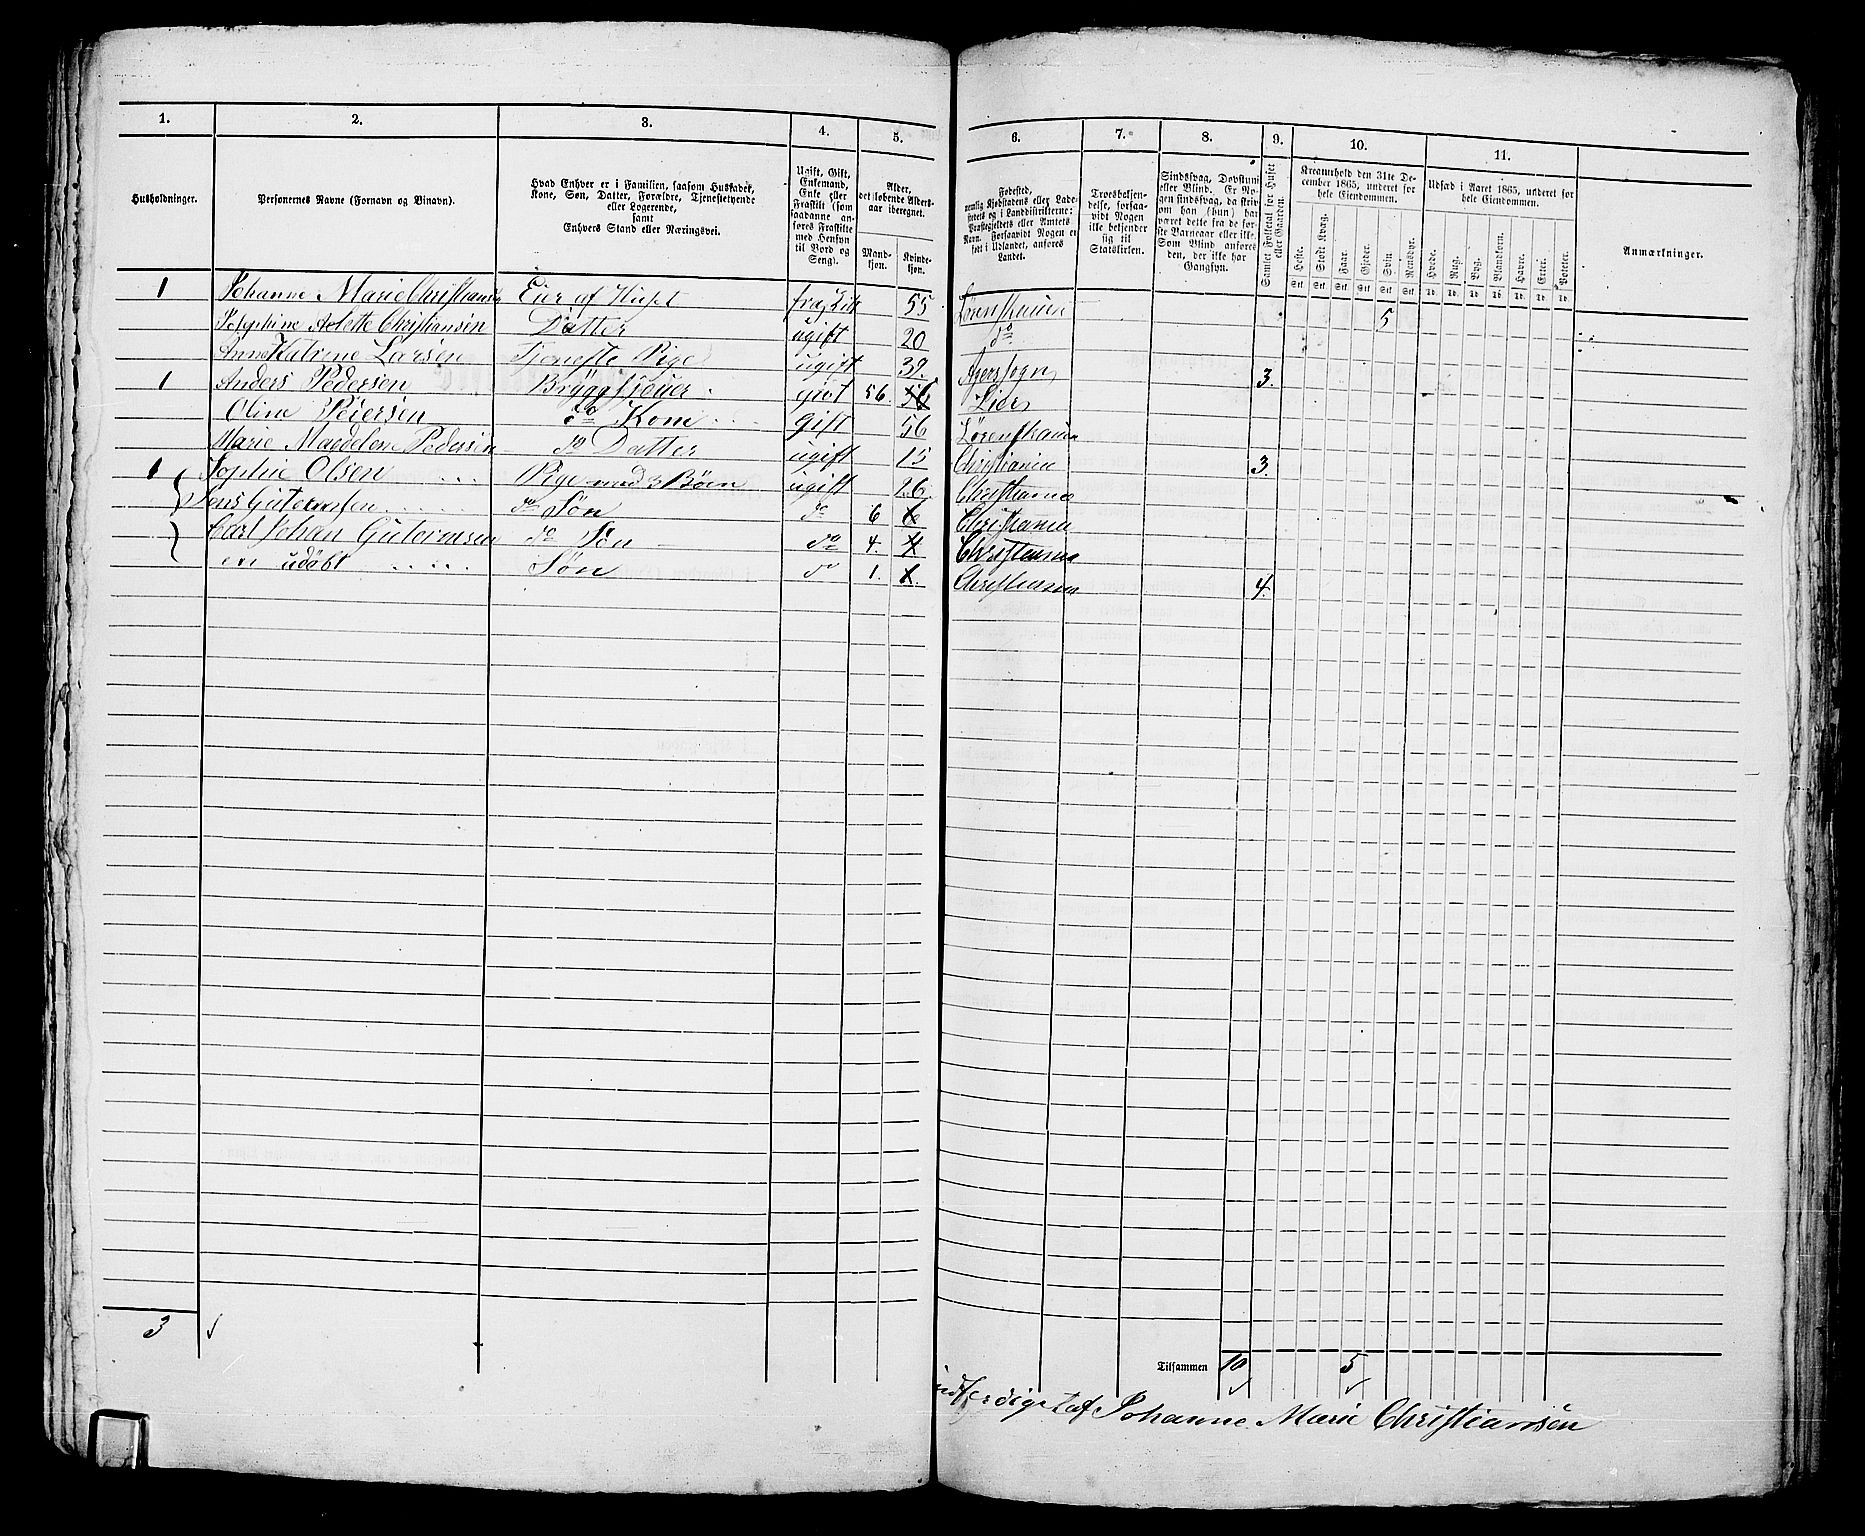 1. 2. 3. 4. 5. 6. 7. 8. 9. 10. 11.
Husholdninger.
Personernes Navne (Fornavn og Binavn).
Hvad Enhver er i Familien, saasom Husfader,
Kone, Søn, Datter, Forældre, Tjenestetyende
eller Logerende,
samt
Enhvers Stand eller Næringsvei.
Ugift, Gift,
Enkemand,
Enke eller
Fraskilt (som
saadanne an-
føres Fraskilte
med Hensyn
til Bord og
Seng).
Alder,
det løbende Alders-
aar iberegnet.
Mand-
kjøn.
Kvinde-
kjøn.
Fødested,
nemlig Kjøbstadens eller Lade-
stedets og i Landdistrikterne:
Præstegjeldets eller Amtets
Navn. Forsaavidt Nogen er
født i Udlandet, anføres
Landet.
Troesbekjen-
delse, forsaa-
vidt Nogen
ikke bekjender
sig til
Statskirken.
Sindssvag, Døvstum
eller Blind. Er No-
gen sindssvag, da skriv
om han (hun) har
været dette fra de før-
ste Barneaar eller ikke.
Som Blind anføres
den, der ikke har
Gangsyn.
Samlet Folketal for Huset
eller Gaarden.
Kreaturhold den 31te De-
cember 1865, underet for
hele Eiendommen.
Heste. Stort Kvæg. Faar. Gjeder. Svin. Rensdyr.
Stk. Stk. Stk. Stk. Stk. Stk.
Udsæd i Aaret 1865, underet for
hele Eiendommen.
Hvede. Rug. Byg. Blandkorn. Havre. Erter. Poteter.
Td. Td. Td. Td. Td. Td. Td.
Anmærkninger.
1 Johanne Marie Christiansen Eier af Huset fraskilt 55 Lørenskauen 5
Josephine Christiansen Datter ugift 20 do
Anne Katrine Larsen Tjeneste Pige ugift 39. Agerssogn 3.
1 Anders Pedersen gift 56. 56 Lier
Oline Pedersen do Kone gift 56 Lørenskauen
Marie Magdelene Pedersen do Datter ugift 15 Christiania 3.
1 Sophie Olsen Pige med 3 Børn ugift 26. Christiania
Jens Gutormsen do Søn do 6 6 Christiania
Carl Johan Gutormsen do Søn do 4. 4 Christiania
en udøbt Søn do 1. 1. Christiania 4.
3
Tilsammen 10 5
udferdiget af Johanne Marie Christiansen